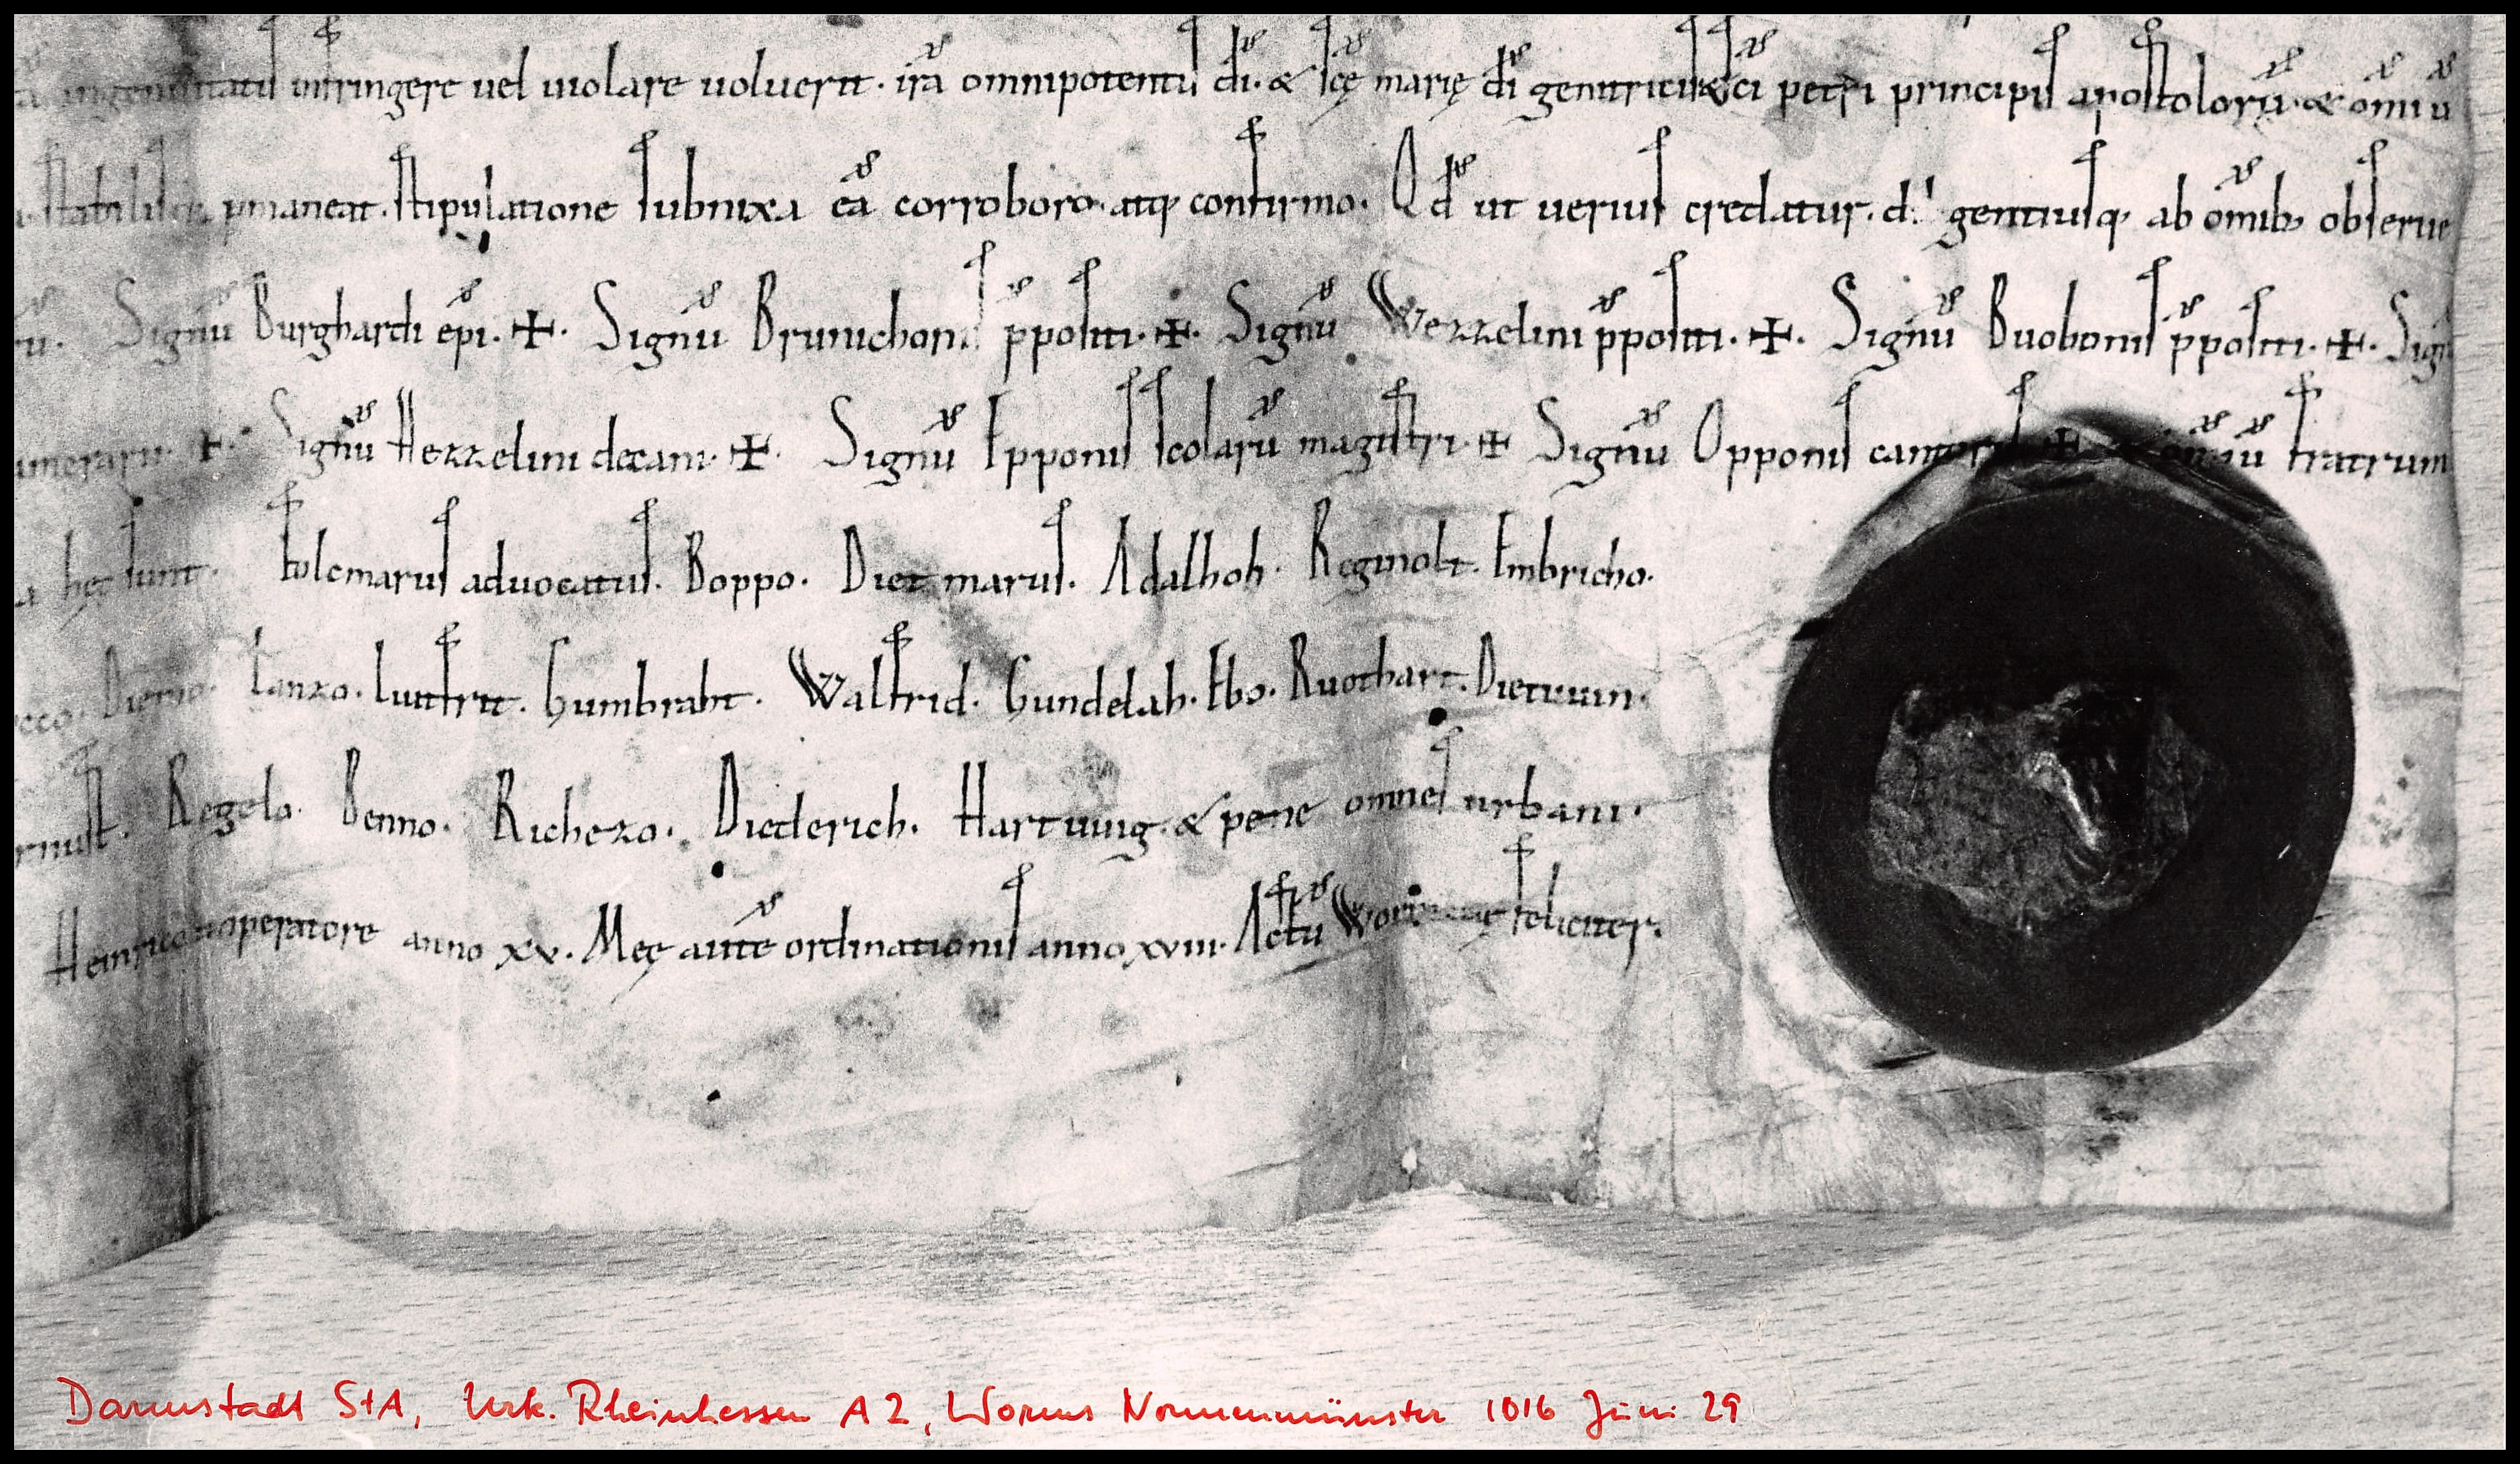 infringere uel uiolare uoluerit. irā omnipotentis dī. & scę marię dī genitricis & scī petri principis apostolorū. & omniū
stabilisq; pmaneat. stipulatione subnixa eā corroboro. atq; confirmo. Qd̄ ut uerius credatur. diligentiusq; ab omīb; obserue
Signū Burghardi epī. ✠. Signū Brunichonis p̄positi. ✠. Signū Wezzelini p̄positi. ✠. Signū Buobonis p̄positi. ✠. Sign
merarii. ✠. Signū Hezzelini decani. ✠. Signū Epponis scolarū magistri. ✠ Signū Opponis camerarii ✠ & omniū fratrum
hęc sunt. Folcmarus aduocatus. Boppo. Dietmarus. Adalhoh. Reginolt. Embricho.
cco. Diemo. Lanzo. Liutfrit. Humbraht. Walfrid. Gundelah. Ebo. Ruothart. Dietuuin.
rnust. Regelo. Benno. Richezo. Diederich. Hartuuig. & pene omnes urbani.
Heinrico imperatore anno xv. Meę autē ordinationis anno xviii. Actū Wormacię feliciter.
Darmstadt StA, Urk. Rheinhessen A 2, Worms Nonnenmünster 1016 Juni 29